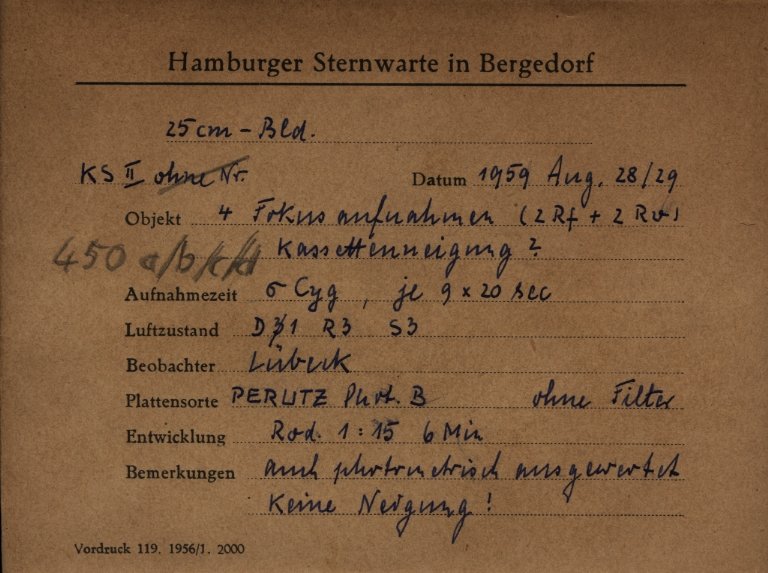 Hamburger Sternwarte in Bergedorf
25cm - Bld.
KS II ohne Nr. Datum 1959 Aug. 28/29
Objekt 4 Fokusaufnahmen (2 Rf + 2 Rv)
450 a/b/c/d Kassettenneigung?
Aufnahmezeit σ Cyg, je 9 x 20 sec
Luftzustand D 1 R3 S3
Beobachter Lübeck
Plattensorte PERUTZ Phot. B ohne Filter
Entwicklung Rod. 1:15 6 Min
Bemerkungen auch photometrisch ausgewertet
Keine Neigung!
Vordruck 119. 1956/1. 2000